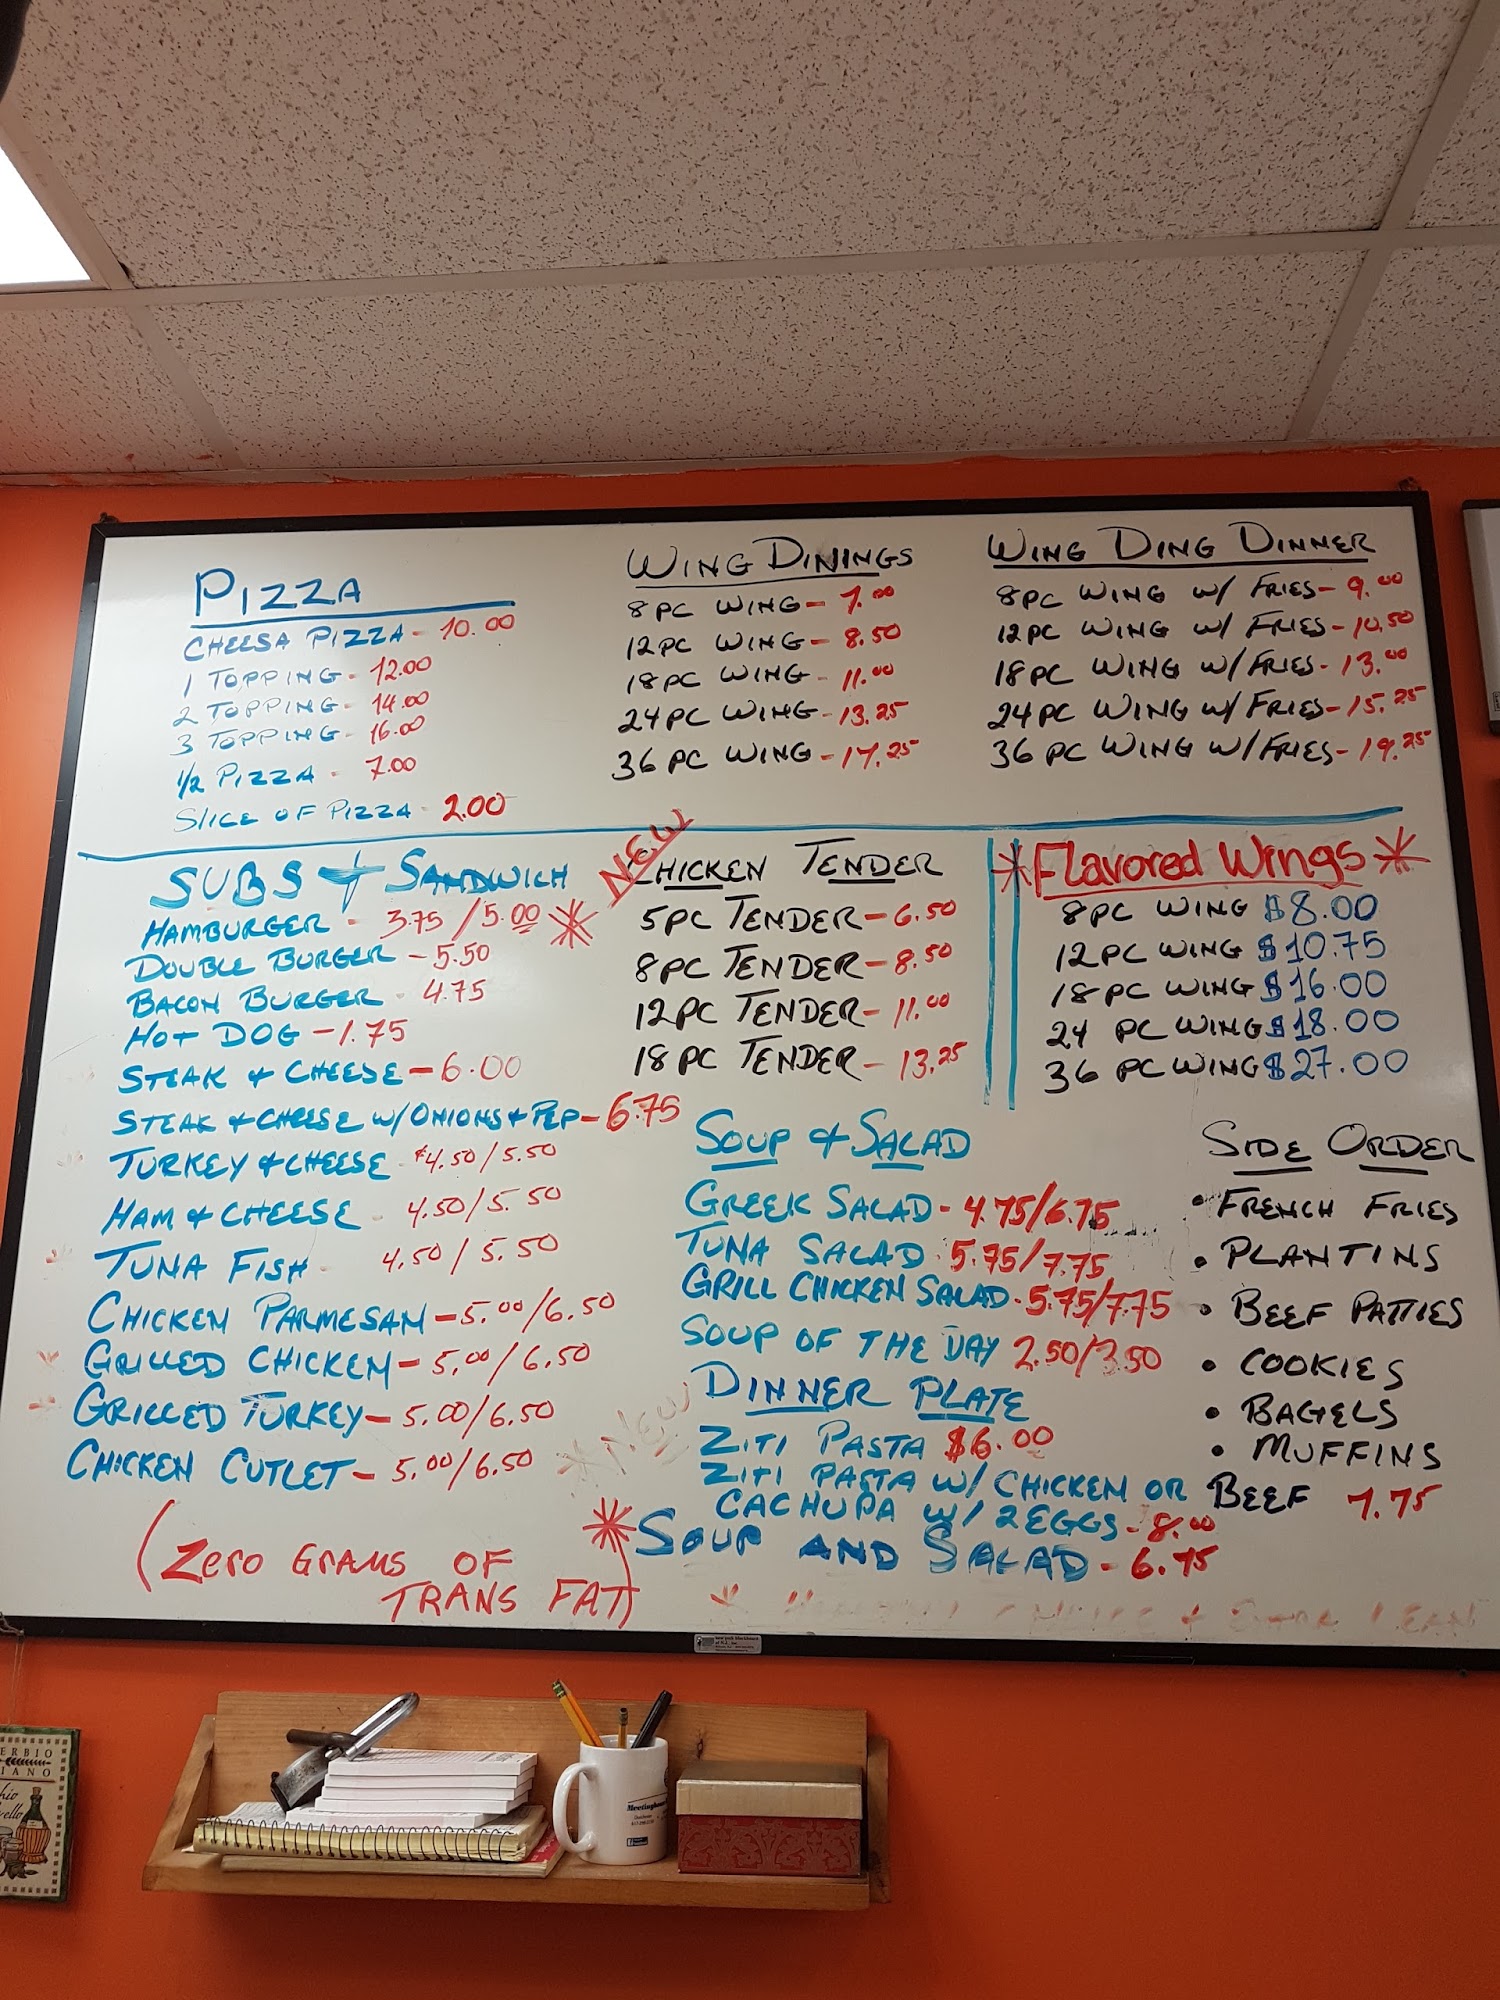 PIZZA
CHEESA PIZZA - 10.00
1 TOPPING - 12.00
2 TOPPING - 14.00
3 TOPPING - 16.00
1/2 PIZZA - 7.00
SLICE OF PIZZA - 2.00
WING DININGS
8 PC WING - 7.00
12 PC WING - 8.50
18 PC WING - 11.00
24 PC WING - 13.25
36 PC WING - 17.25
WING DING DINNER
8 PC WING W/ FRIES - 9.00
12 PC WING W/ FRIES - 10.50
18 PC WING W/ FRIES - 13.00
24 PC WING W/ FRIES - 15.25
36 PC WING W/ FRIES - 19.25
SUBS + SANDWICH
HAMBURGER - 3.75 / 5.00 *
DOUBLE BURGER - 5.50
BACON BURGER - 4.75
HOT DOG - 1.75
STEAK & CHEESE - 6.00
STEAK & CHEESE W/ ONIONS + PEP - 6.75
TURKEY & CHEESE - $4.50 / 5.50
HAM & CHEESE - 4.50 / 5.50
TUNA FISH - 4.50 / 5.50
CHICKEN PARMESAN - 5.00 / 6.50
GRILLED CHICKEN - 5.00 / 6.50
GRILLED TURKEY - 5.00 / 6.50
CHICKEN CUTLET - 5.00 / 6.50
(ZERO GRAMS OF
TRANS FAT)
NEW
CHICKEN TENDER
5 PC TENDER - 6.50
8 PC TENDER - 8.50
12 PC TENDER - 11.00
18 PC TENDER - 13.25
* Flavored Wings *
8 PC WING $8.00
12 PC WING $10.75
18 PC WING $16.00
24 PC WING $18.00
36 PC WING $27.00
SOUP & SALAD
GREEK SALAD - 4.75/6.75
TUNA SALAD 5.75/7.75
GRILL CHICKEN SALAD - 5.75/7.75
SOUP OF THE DAY 2.50/3.50
*NEW
DINNER PLATE
ZITI PASTA $6.00
ZITI PASTA W/ CHICKEN OR BEEF 7.75
CACHUPA W/ 2 EGGS - 8.00
* SOUP AND SALAD - 6.75
SIDE ORDER
• FRENCH FRIES
• PLANTINS
• BEEF PATTIES
• COOKIES
• BAGELS
• MUFFINS